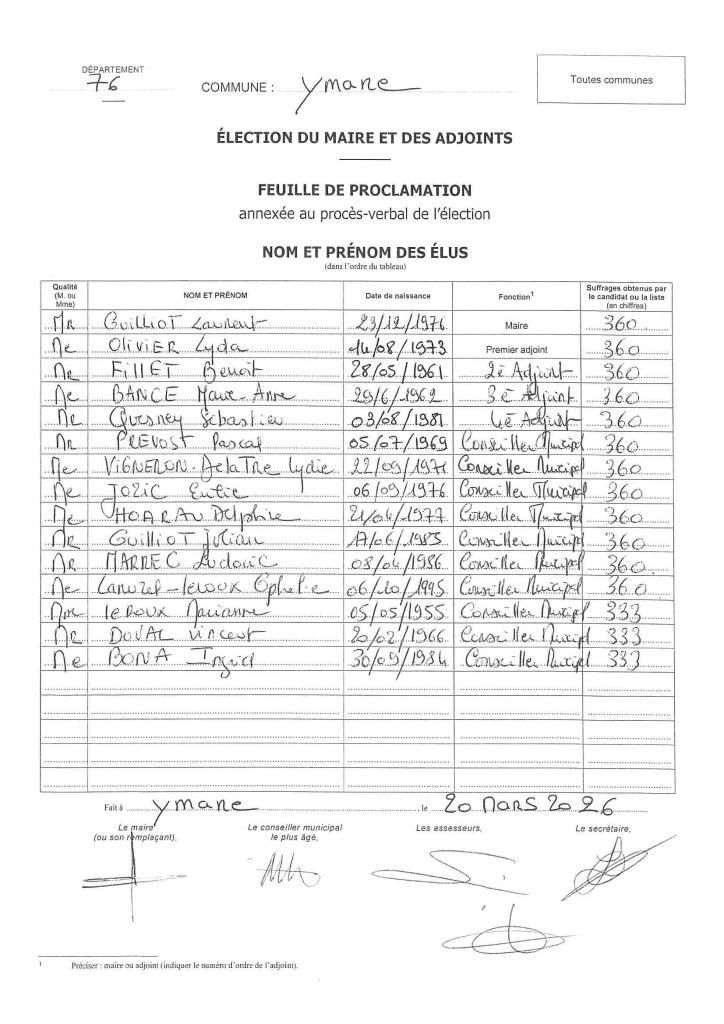 DÉPARTEMENT
76
COMMUNE : Ymare
Toutes communes
ÉLECTION DU MAIRE ET DES ADJOINTS
FEUILLE DE PROCLAMATION
annexée au procès-verbal de l'élection
NOM ET PRÉNOM DES ÉLUS
(dans l'ordre du tableau)
Qualité (M. ou Mme) NOM ET PRÉNOM Date de naissance Fonction¹ Suffrages obtenus par le candidat ou la liste (en chiffres)
Mr GUILLIOT Laurent 23/12/1976 Maire 360
Me OLIVIER Lyda 14/08/1973 Premier adjoint 360
Mr FILLET Benoît 28/05/1961 2è Adjoint 360
Me BANCE Marie-Anne 29/6/1962 3è Adjoint 360
Mr Quesney Sébastien 03/08/1981 4è Adjoint 360
Mr PREVOST Pascal 05/07/1969 Conseiller Municipal 360
Me VIGNERON-DelaTRE Lydie 22/09/1971 Conseiller Municipal 360
Me JOZIC 06/09/1976 Conseiller Municipal 360
Me HOARAU Delphine 21/04/1977 Conseiller Municipal 360
Mr Guilliot Julian 17/06/1983 Conseiller Municipal 360
Mr MARREC Ludovic 08/04/1986 Conseiller Municipal 360
Me Ophelie 06/10/1995 Conseiller Municipal 360
Mme leROUX Marianne 05/05/1955 Conseiller Municipal 333
Mr DOUAL Vincent 20/02/1966 Conseiller Municipal 333
Me BONA Ingrid 30/09/1984 Conseiller Municipal 333
Fait à Ymare, le 20 MARS 2026
Le maire (ou son remplaçant), Le conseiller municipal le plus âgé, Les assesseurs, Le secrétaire,
¹ Préciser : maire ou adjoint (indiquer le numéro d'ordre de l'adjoint).